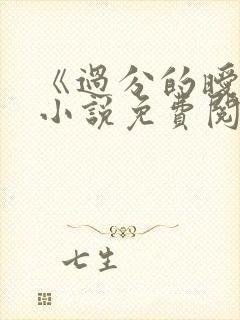 《過分的瞬
小說免費閱
七生